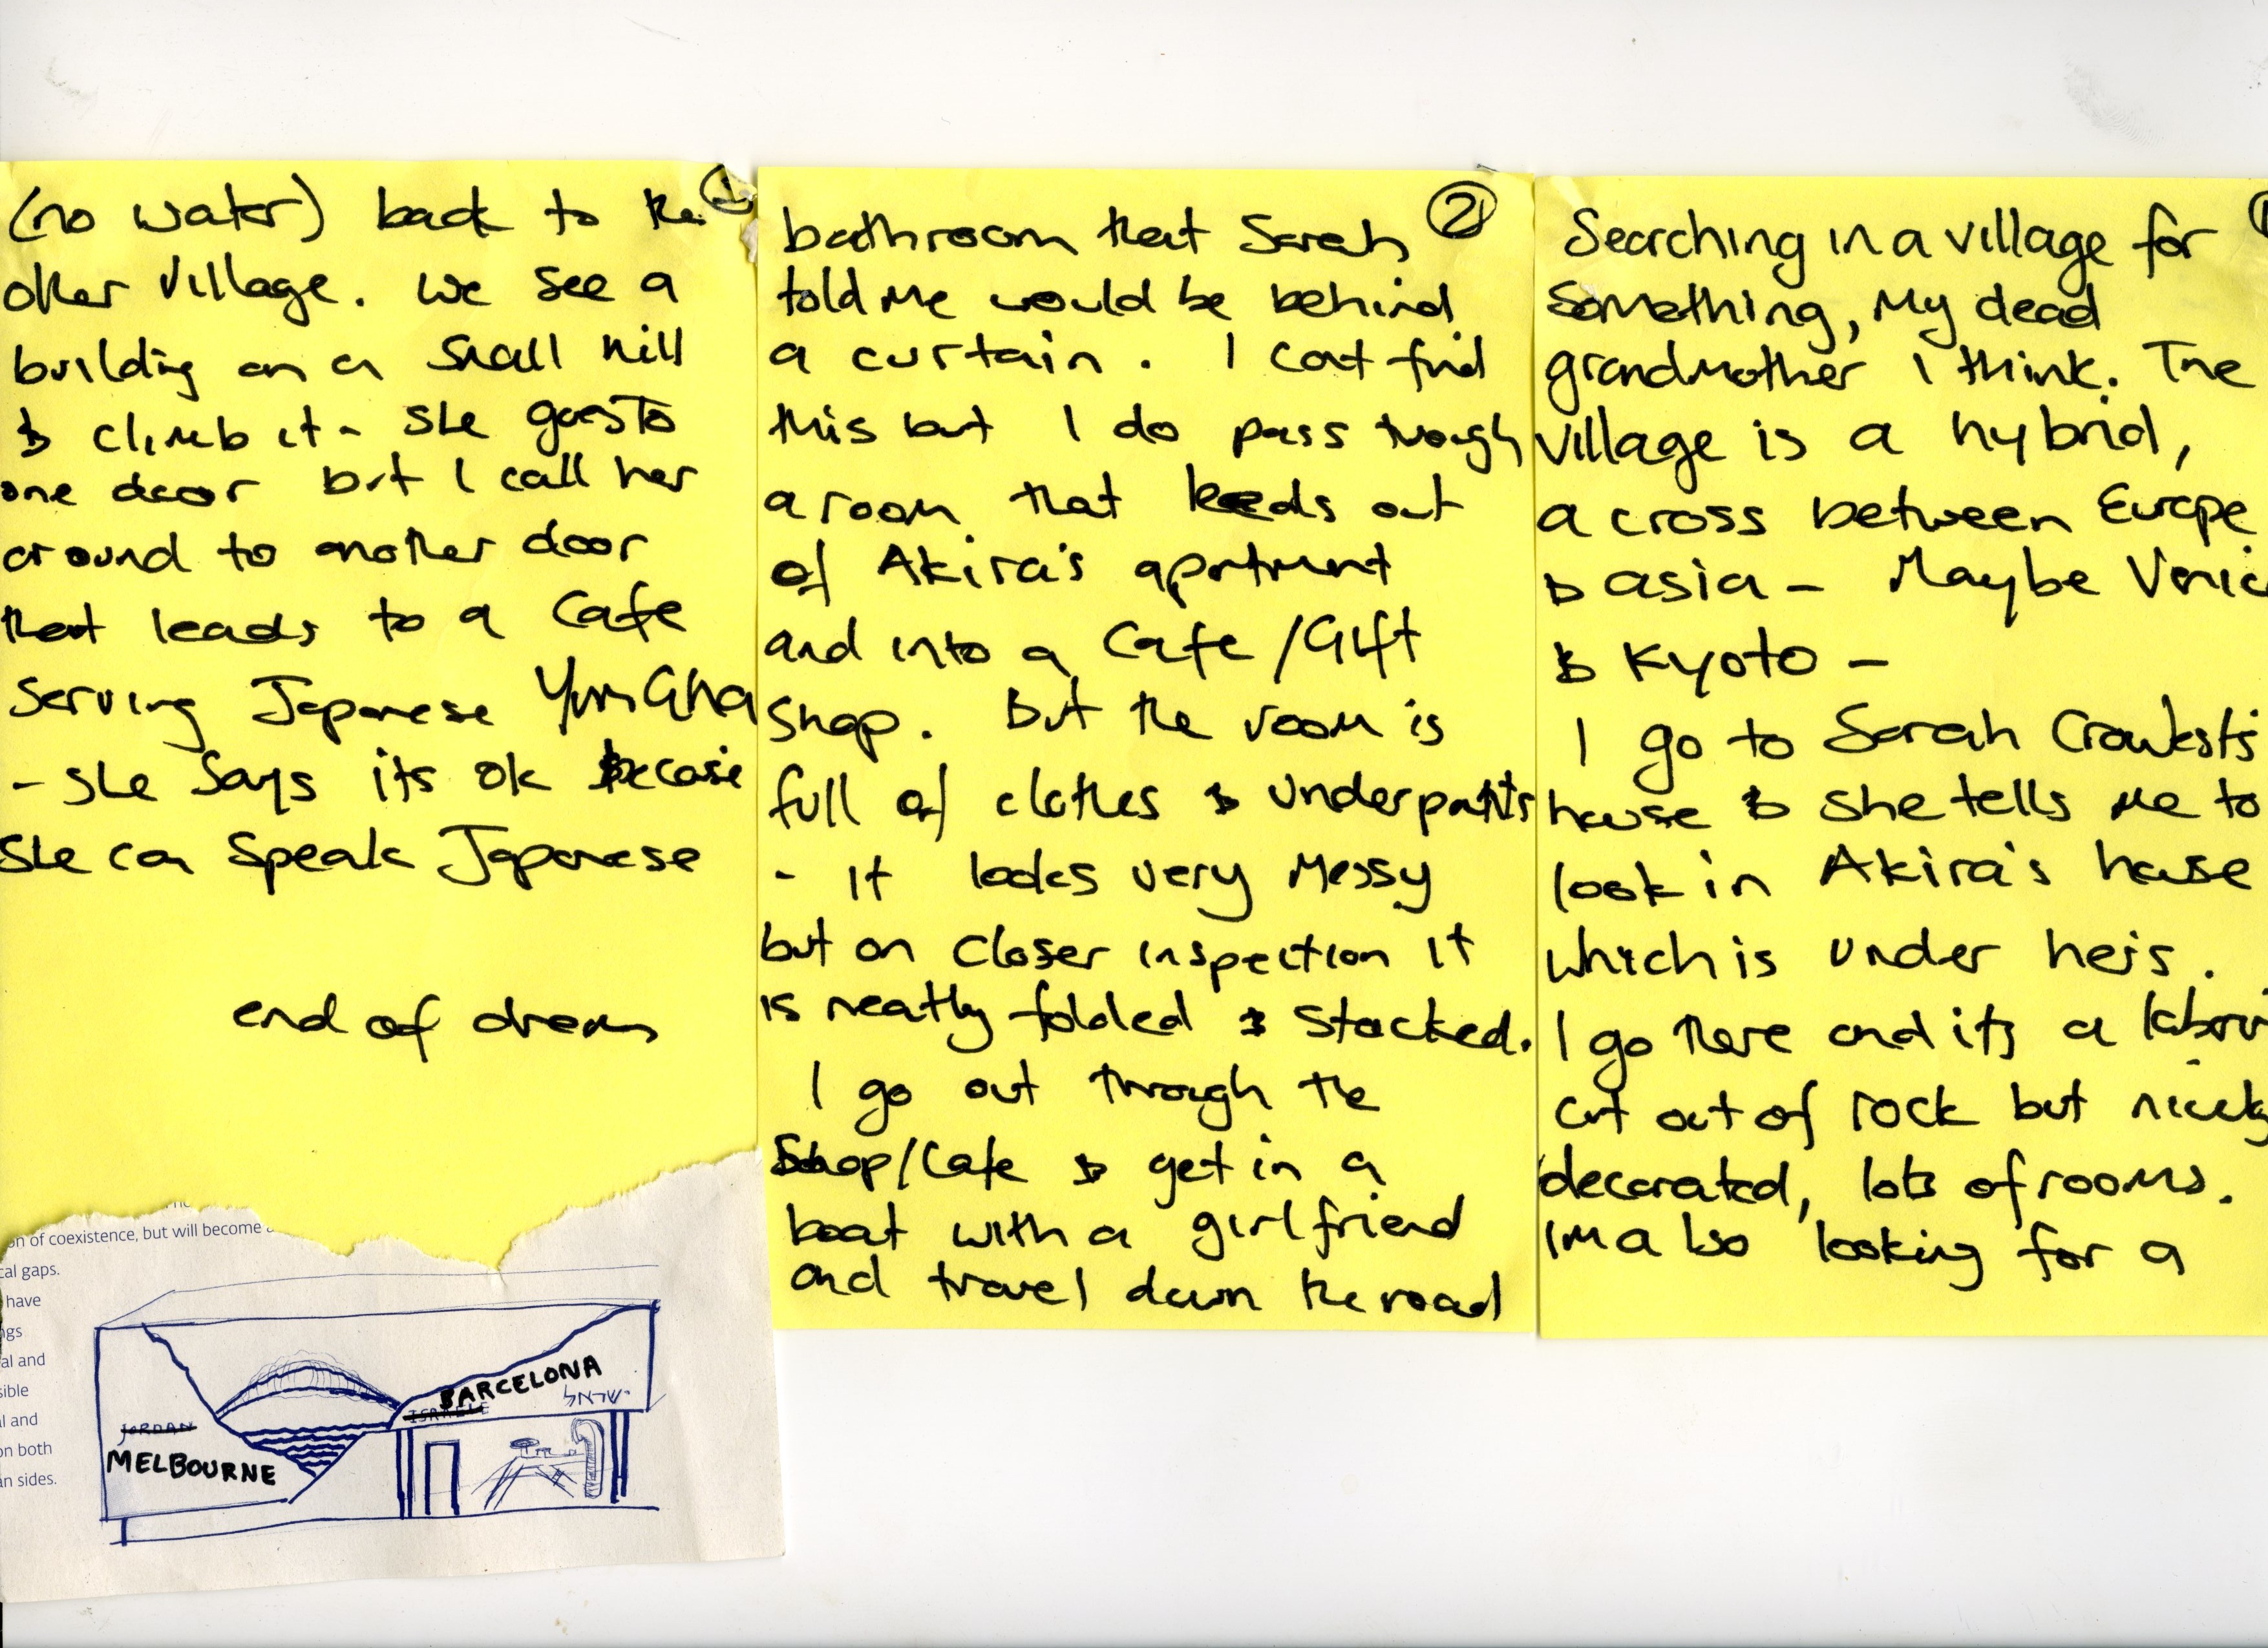 Searching in a village for
Something, My dead
grandmother I think. The
village is a hybrid,
a cross between Europe
& asia - Maybe Venic
& Kyoto -
I go to Sarah
house & she tells me to
look in Akira's house
which is under hers.
I go there and its a
cut out of rock but nicely
decorated, lots of rooms.
Im also looking for a
②
bathroom that Sarah
told me would be behind
a curtain. I cant find
this but I do pass through
a room that leads out
of Akira's apartment
and into a Cafe/Gift
Shop. But the room is
full of clothes & underpants
- It looks very messy
but on closer inspection it
is neatly folded & stacked.
I go out through the
Shop/Cafe & get in a
boat with a girlfriend
and travel down the road
(no water) back to the
other village. We see a
building on a small hill
& climb it - she goes to
one door but I call her
around to another door
that leads to a Cafe
Serving Japanese Yum Cha
- she says its ok because
she can speak Japanese
end of dream
on of coexistence, but will become
cal gaps.
have
ngs
al and
sible
l and
on both
an sides.
BARCELONA
ISRAELE
ישראל
JORDAN
MELBOURNE